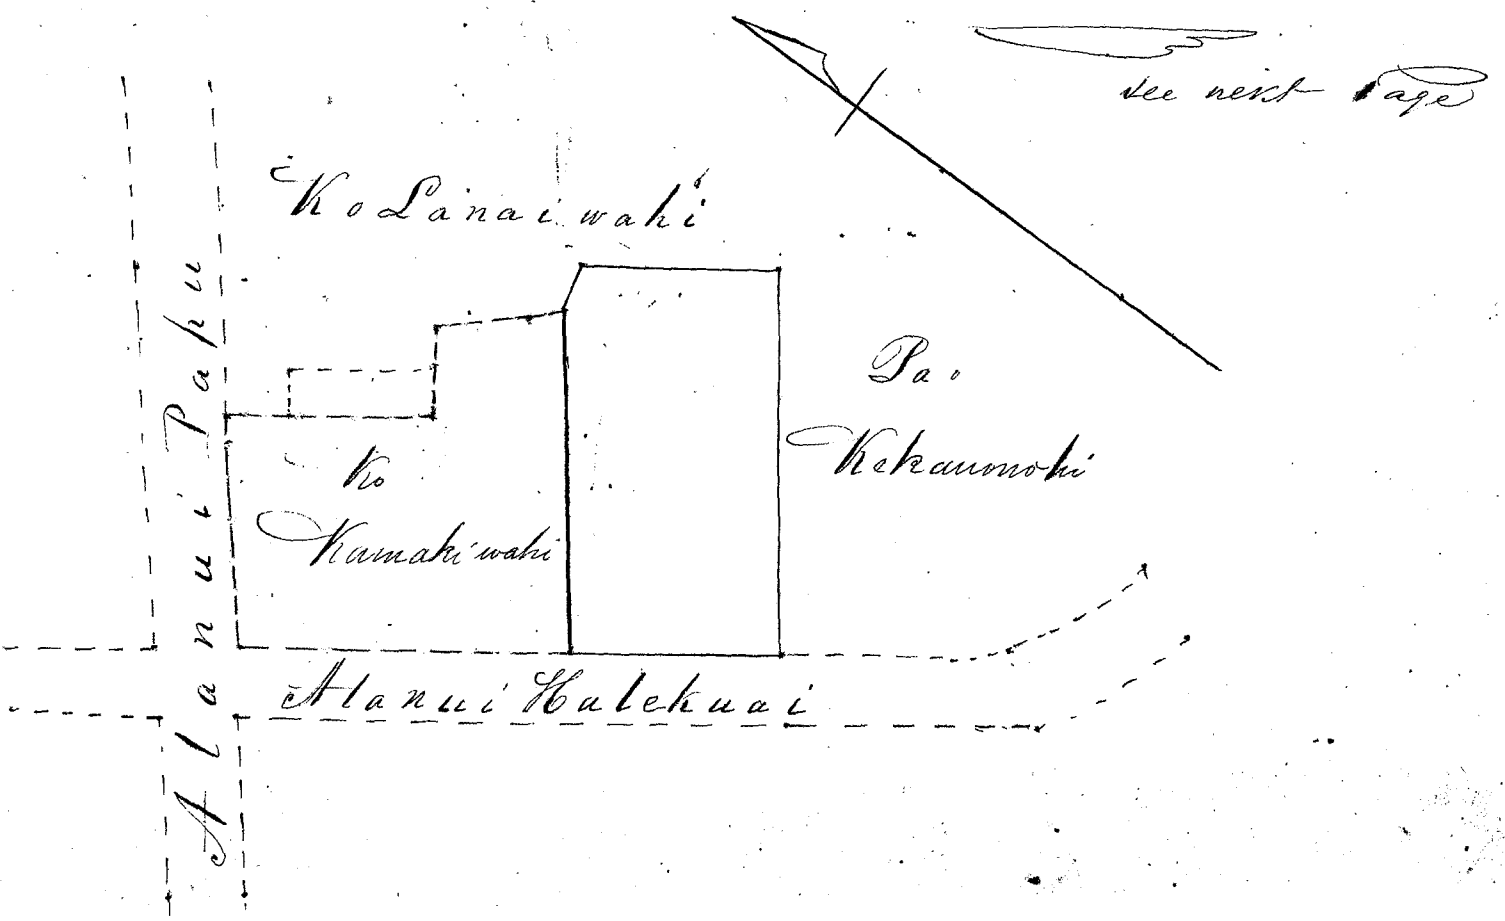 see next Page
Ko Lanai wahi
Alanui Papu
Pa
Kekauonohi
Ko
Kamaki wahi
Alanui Halekuai